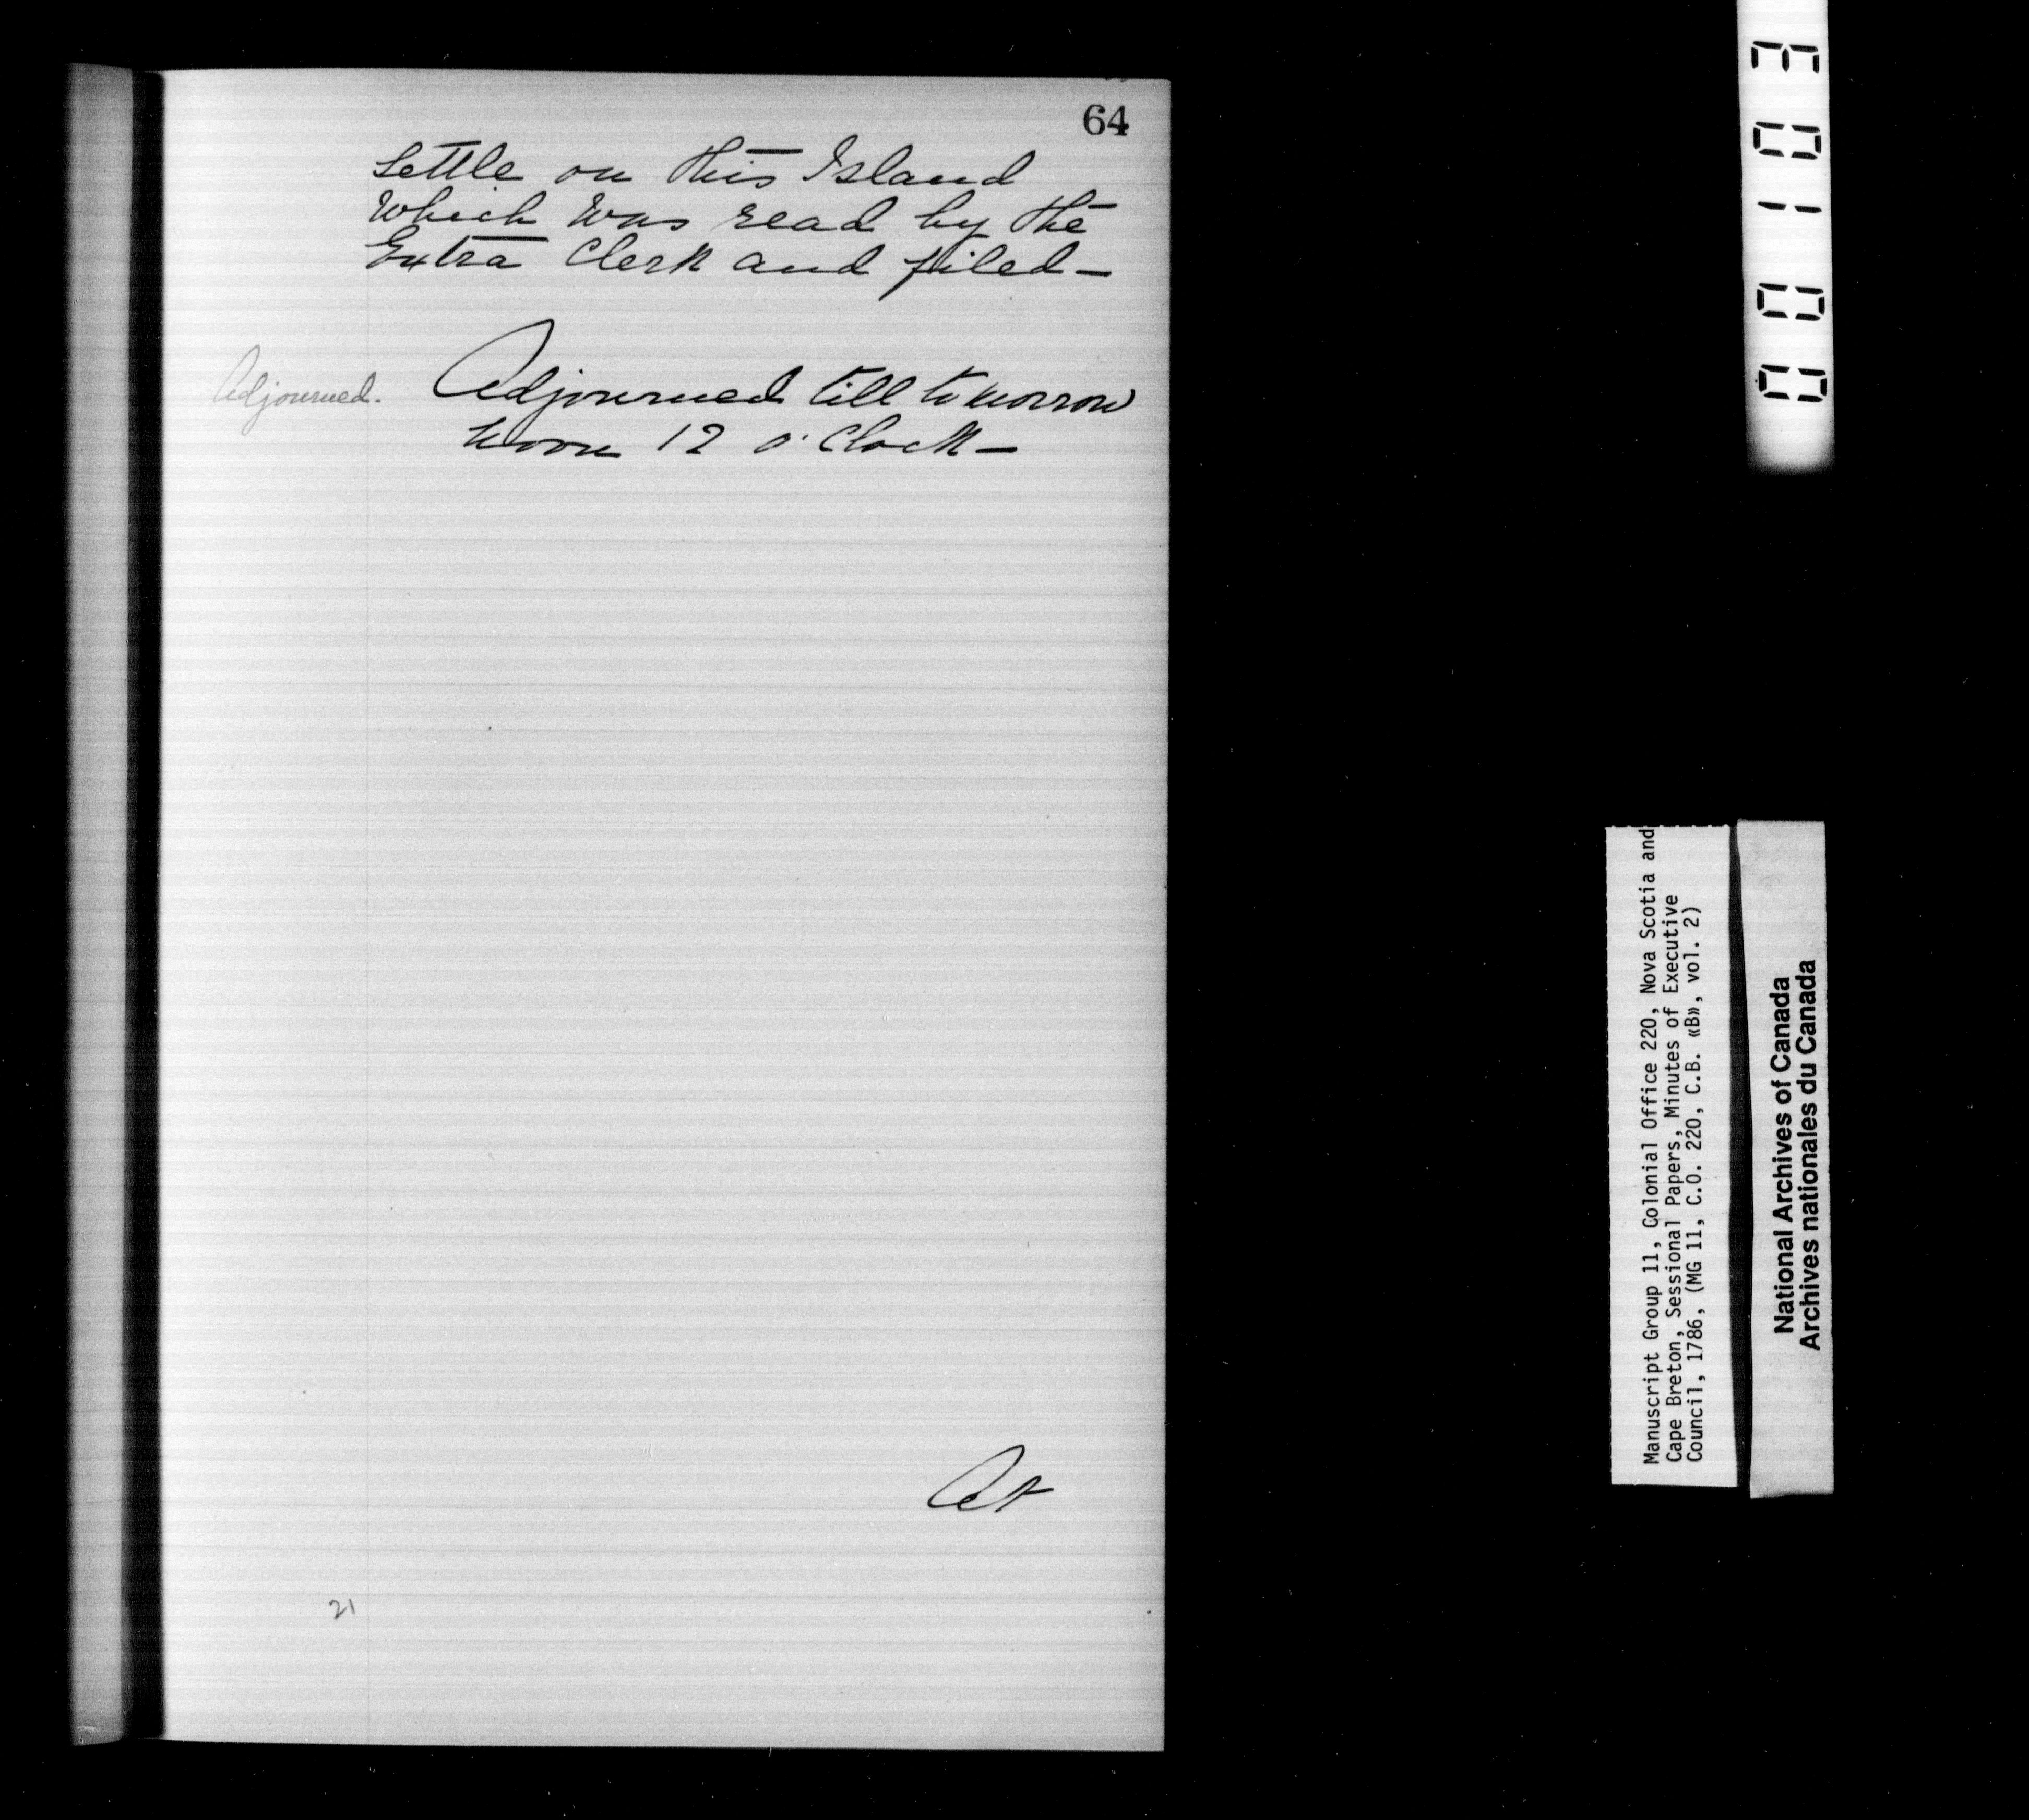 64
settle on this Island
which was read by the
Extra Clerk and filed—
Adjourned.
Adjourned till tomorrow
noon 12 o'Clock—
At
21
001103
Manuscript Group 11, Colonial Office 220, Nova Scotia and
Cape Breton, Sessional Papers, Minutes of Executive
Council, 1786, (MG 11, C.O. 220, C.B. «B», vol. 2)
National Archives of Canada
Archives nationales du Canada